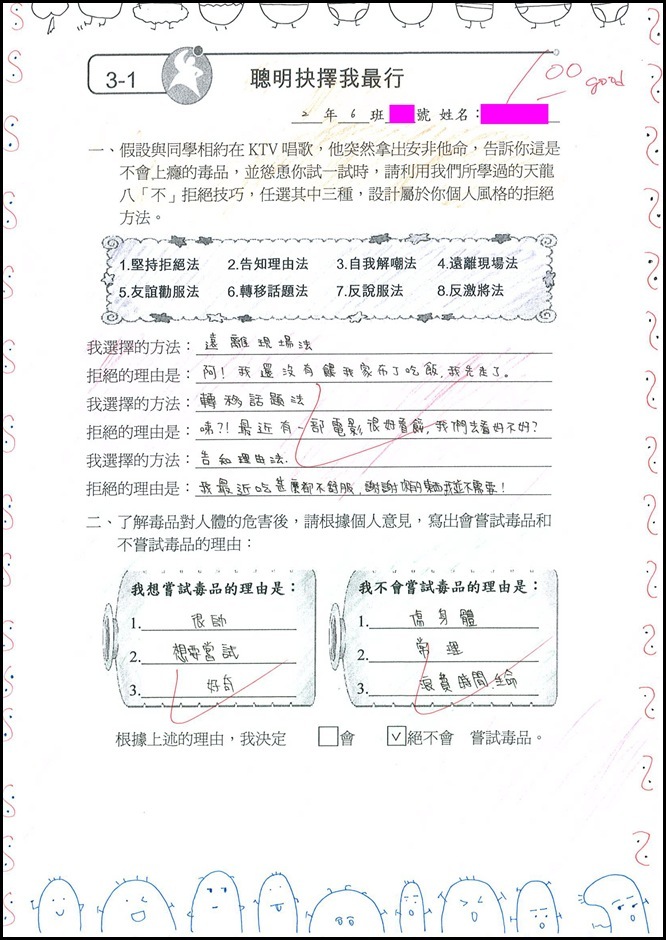 3-1
聰明抉擇我最行
100 good
2 年 6 班 號 姓名：
一、假設與同學相約在 KTV 唱歌，他突然拿出安非他命，告訴你這是
不會上癮的毒品，並慫恿你試一試時，請利用我們所學過的天龍
八「不」拒絕技巧，任選其中三種，設計屬於你個人風格的拒絕
方法。
1.堅持拒絕法 2.告知理由法 3.自我解嘲法 4.遠離現場法
5.友誼勸服法 6.轉移話題法 7.反說服法 8.反激將法
我選擇的方法：遠離現場法
拒絕的理由是：阿！我還沒有餵我家布丁吃飯，我先走了。
我選擇的方法：轉移話題法
拒絕的理由是：咦?!最近有一部電影很好看餒，我們去看好不好?
我選擇的方法：告知理由法.
拒絕的理由是：我最近吃甚麼都不舒服，謝謝你的 我並不需要！
二、了解毒品對人體的危害後，請根據個人意見，寫出會嘗試毒品和
不嘗試毒品的理由：
我想嘗試毒品的理由是：
1. 很帥
2. 想要嘗試
3. 好奇
我不會嘗試毒品的理由是：
1. 傷身體
2. 常理
3. 浪費時間.生命
根據上述的理由，我決定 □會 ☑絕不會 嘗試毒品。